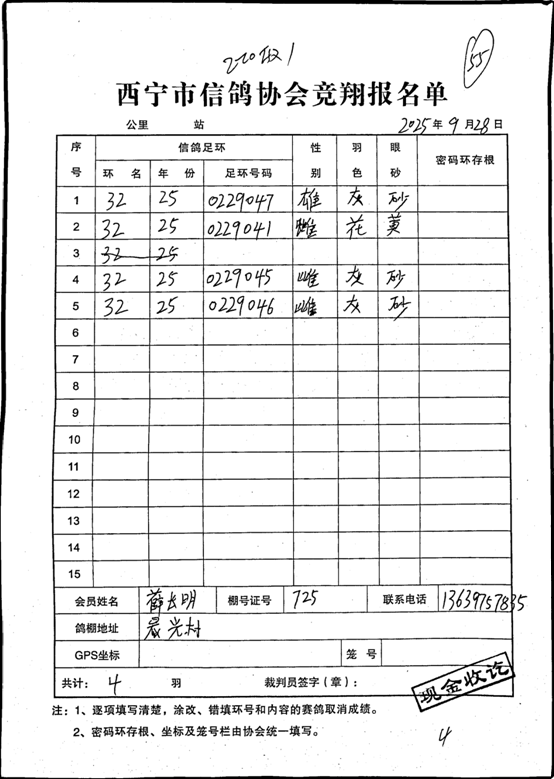 55
西宁市信鸽协会竞翔报名单
公里 站 2025年9月28日
序号 信鸽足环 性别 羽色 眼砂 密码环存根
环 名 年 份 足环号码
1 32 25 0229047 雄 灰 砂
2 32 25 0229041 雌 花 黄
3 32 25
4 32 25 0229045 雌 灰 砂
5 32 25 0229046 雌 灰 砂
6
7
8
9
10
11
12
13
14
15
会员姓名 薛长明 棚号证号 725 联系电话 13639757835
鸽棚地址 晨光村
GPS坐标 笼 号
共计: 4 羽 裁判员签字(章):
现金收讫
注:1、逐项填写清楚,涂改、错填环号和内容的赛鸽取消成绩。
2、密码环存根、坐标及笼号栏由协会统一填写。
4